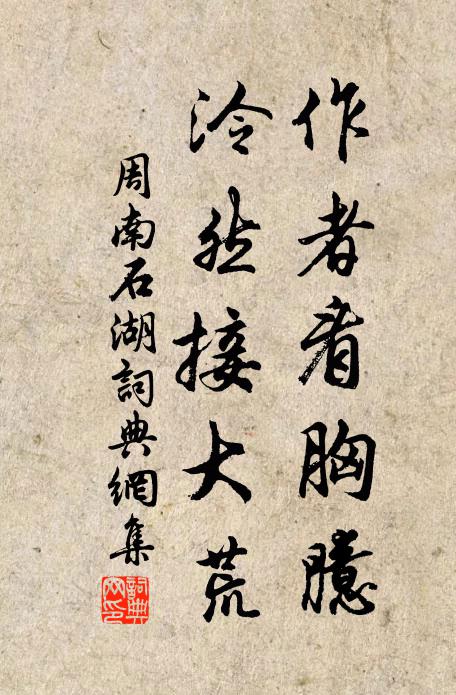 作者看胸臆
泠然接大荒
周南石湖詞典網集
詞典網印